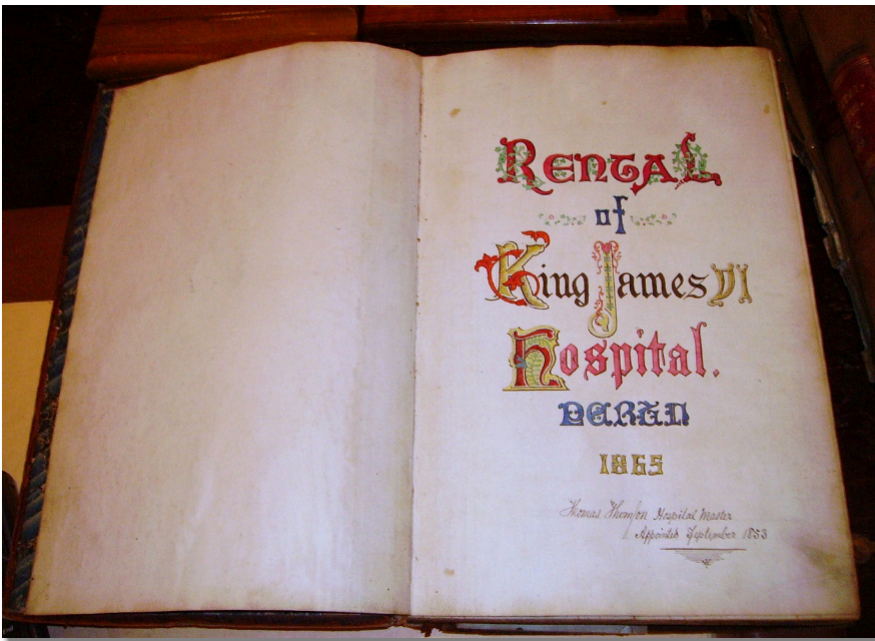 Rental
of
King James VI
Hospital.
PERTH
1865
Thomas Thomson Hospital Master
Appointed September 1853